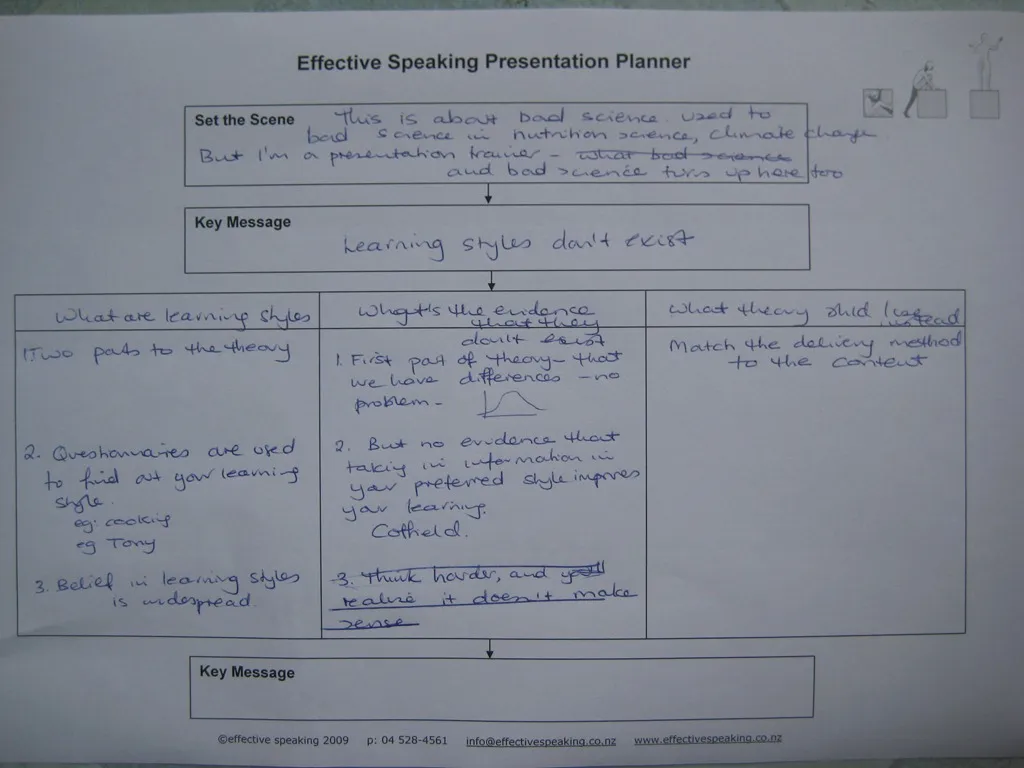 Effective Speaking Presentation Planner
Set the Scene This is about bad science. used to
bad science in nutrition science, climate change
But I'm a presentation trainer – what bad science
and bad science turns up here too
Key Message
Learning styles don't exist
What are learning styles
1. Two parts to the theory
2. Questionnaires are used
to find out your learning
style.
eg: cooking
eg Tony
3. Belief in learning styles
is widespread.
What's the evidence
that they
don't exist
1. First part of theory – that
we have differences – no
problem –
2. But no evidence that
taking in information in
your preferred style improves
your learning.
Coffield.
3. Think harder, and you'll
realise it doesn't make
sense
What theory shld I use
instead
Match the delivery method
to the content
Key Message
©effective speaking 2009 p: 04 528-4561 info@effectivespeaking.co.nz www.effectivespeaking.co.nz